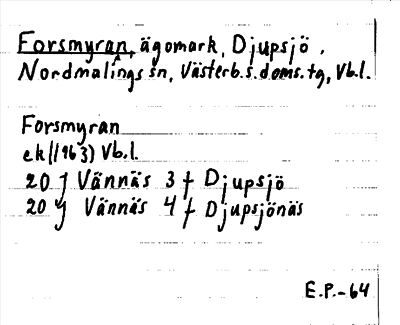 Forsmyran, ägomark, Djupsjö,
Nordmalings sn, Västerb.s.doms.tg, Vb.l.
Forsmyran
ek (1963) Vb.l.
20 J Vännäs 3 f Djupsjö
20 j Vännäs 4 f Djupsjönäs
E.P.-64